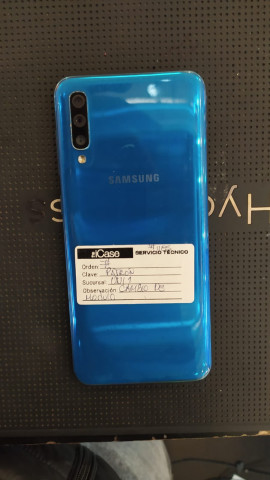 SAMSUNG
iCase
SERVICIO TÉCNICO
Orden:
Clave: PATRON
Sucursal:
Observación: CAMBIO DE
MODULO